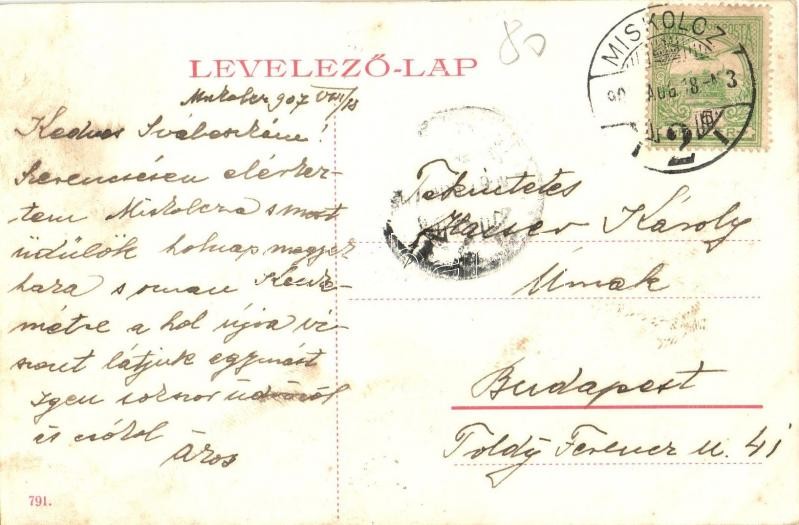 80
LEVELEZŐ-LAP
MISKOLCZ
AUG 18
3
2
POSTA
Miskolcz 907 VIII/18
Kedves
Szerencsésen elérkez-
tem Miskolczra s most
üdülök holnap megyek
haza s onnan Kecske-
métre a hol újra vi-
szont látjuk egymást
Igen sokszor üdvözöl
és csókol
Tekintetes
Károly
Úrnak
Budapest
Toldy Ferencz u. 41
791.